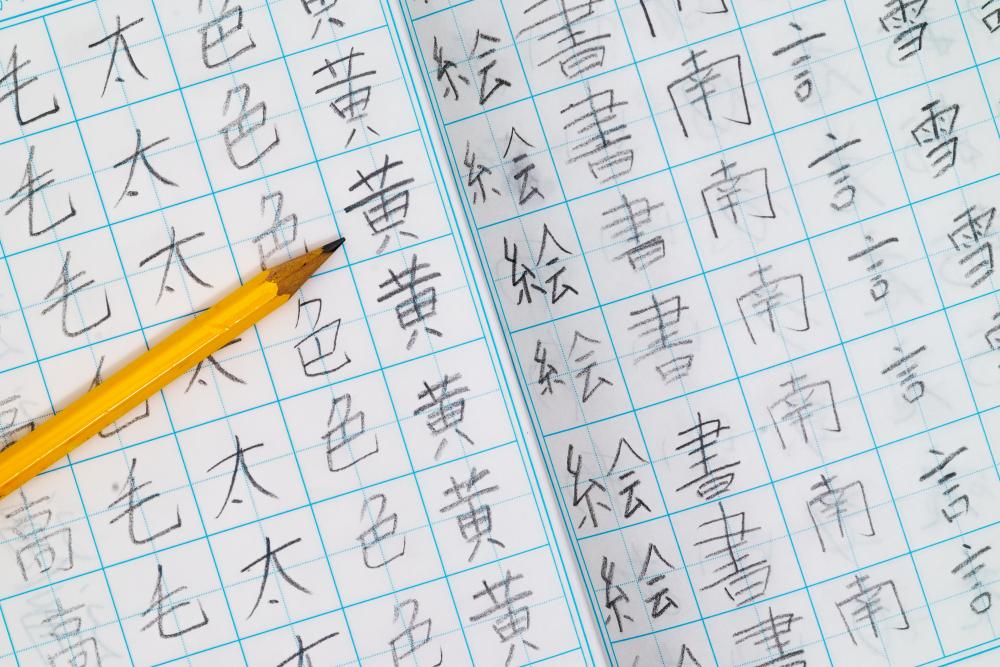 雪雪雪
言言言言言言
南南南南南南
書書書書書書書
絵絵絵絵絵絵
黄黄黄黄黄黄
色色色色色色色
太太太太太太
毛毛毛毛毛
高高